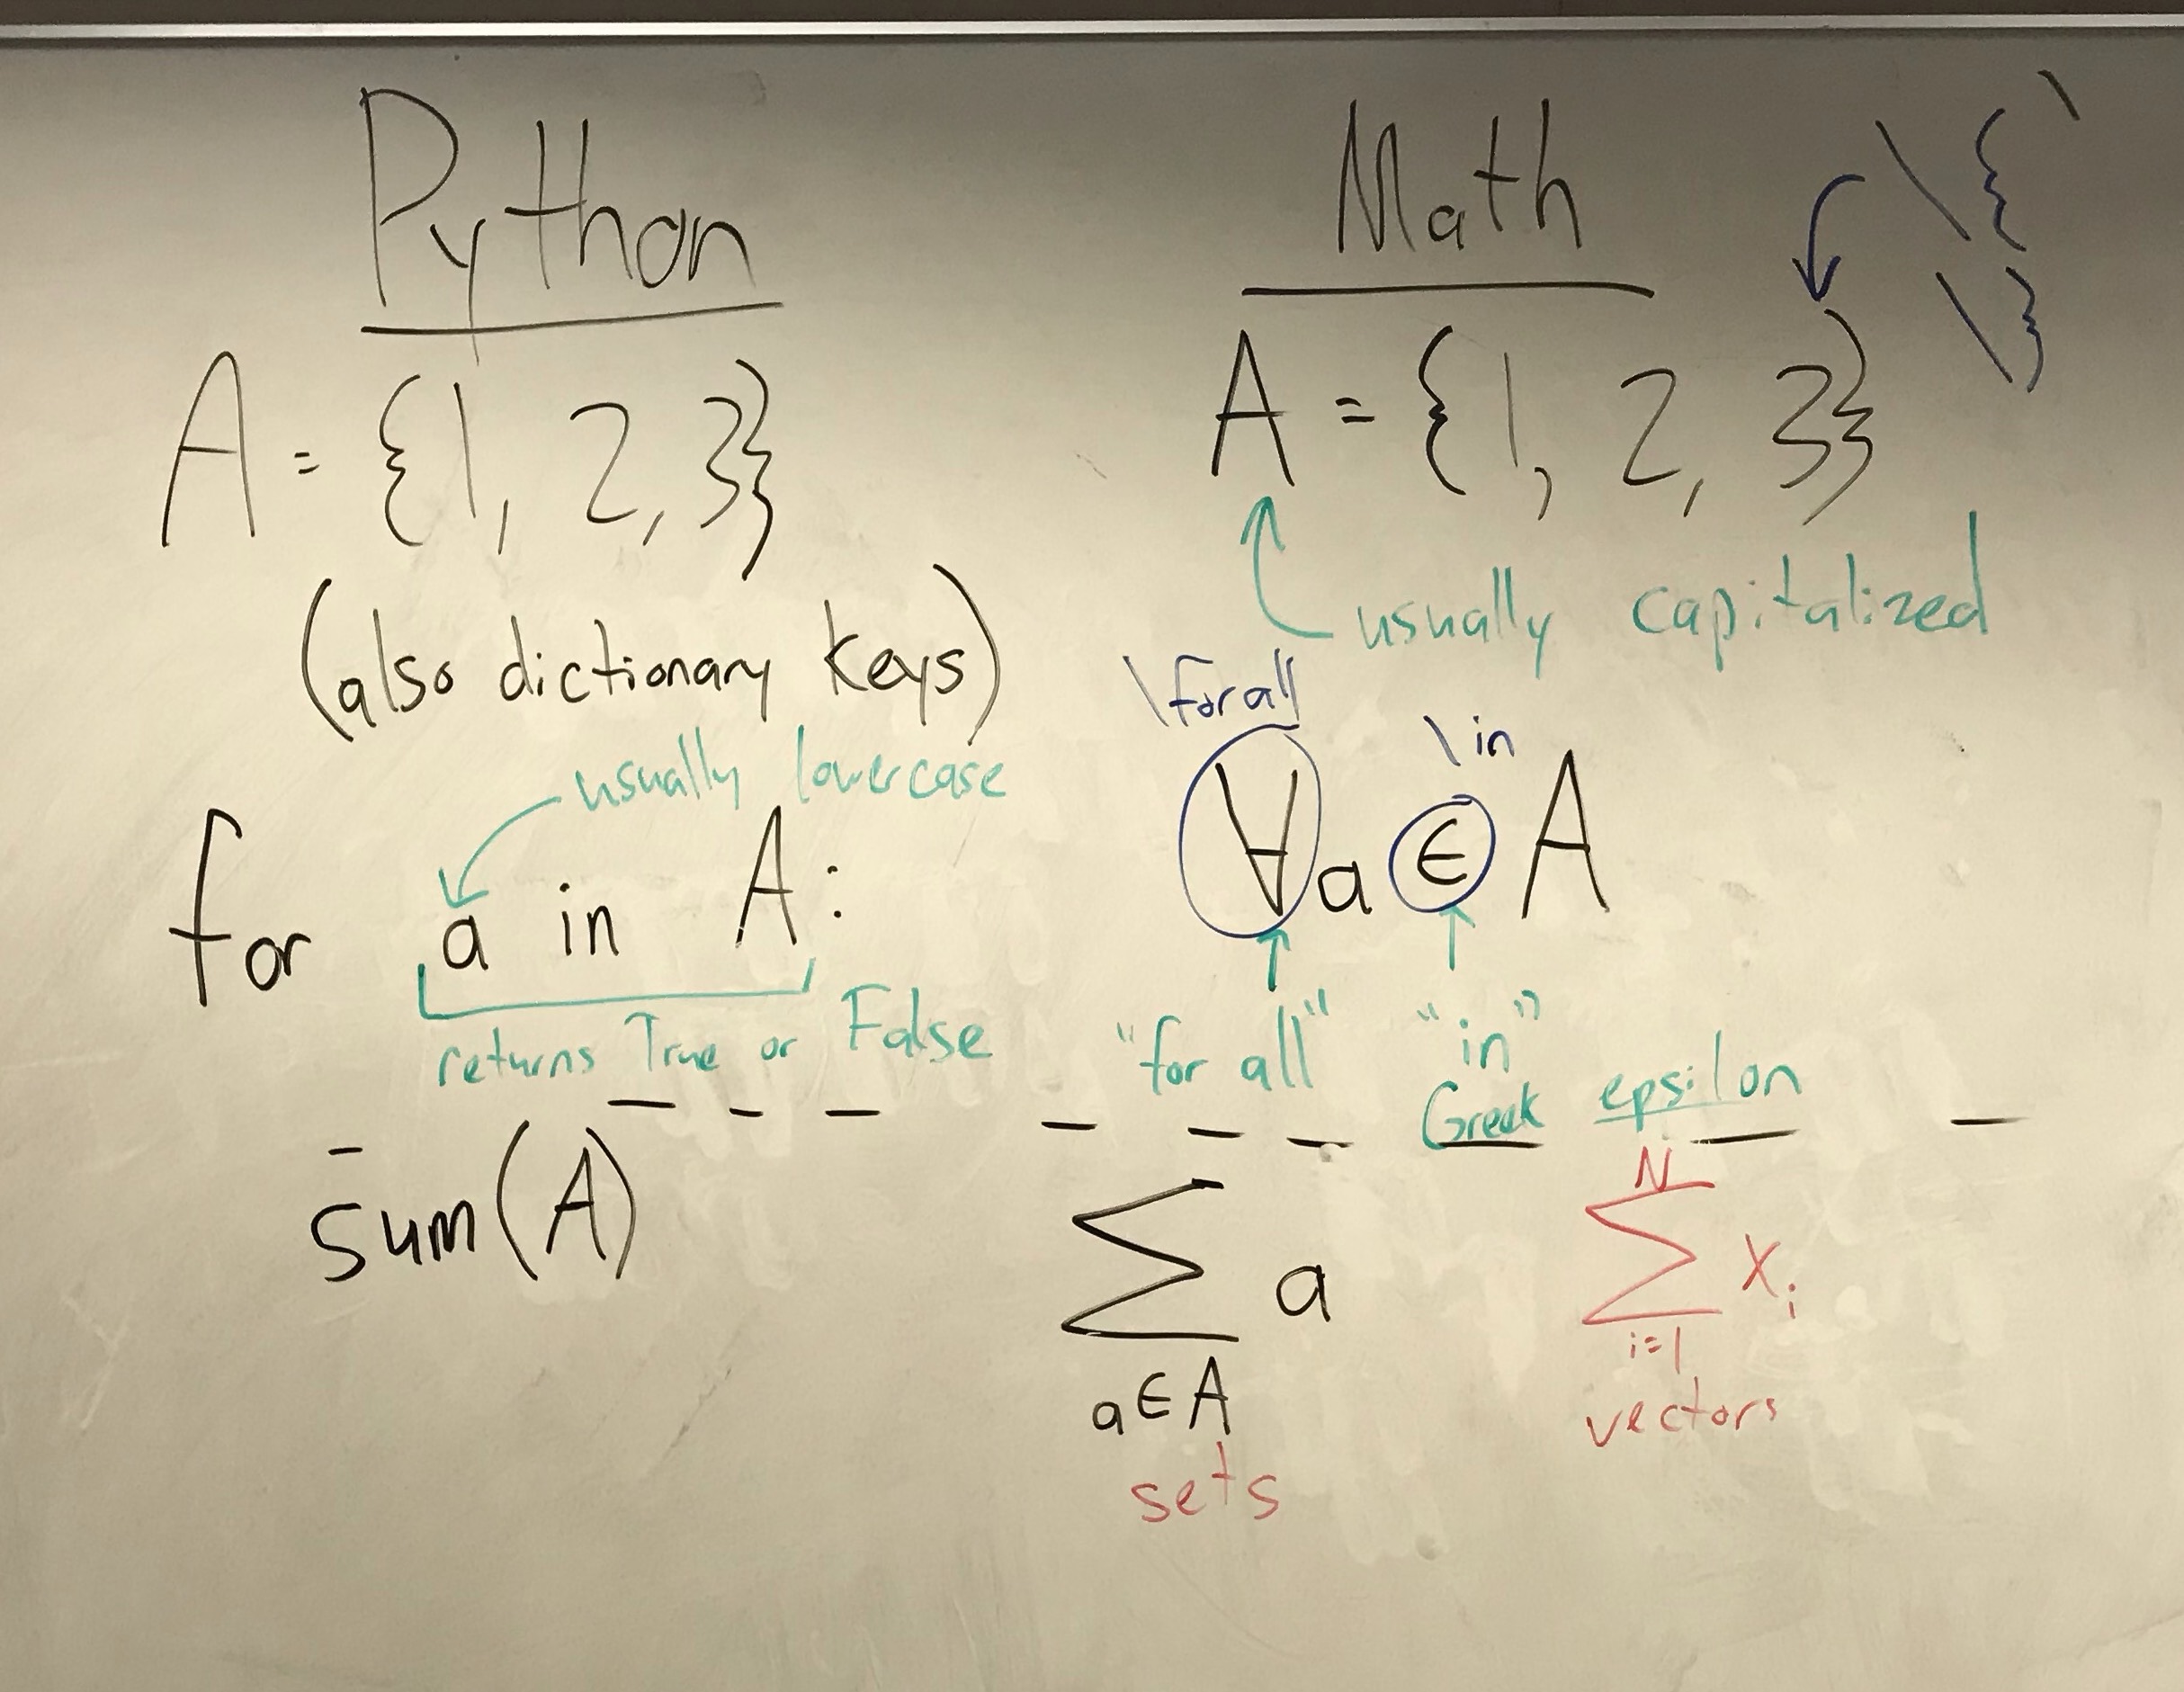 Python
A = {1, 2, 3}
(also dictionary keys)
usually lowercase
for a in A:
returns True or False
sum(A)
Math
\{
\}
A = {1, 2, 3}
usually capitalized
\forall
\in
∀a ∈ A
"for all" "in"
Greek epsilon
∑ a
a∈A
sets
N
∑ xᵢ
i=1
vectors